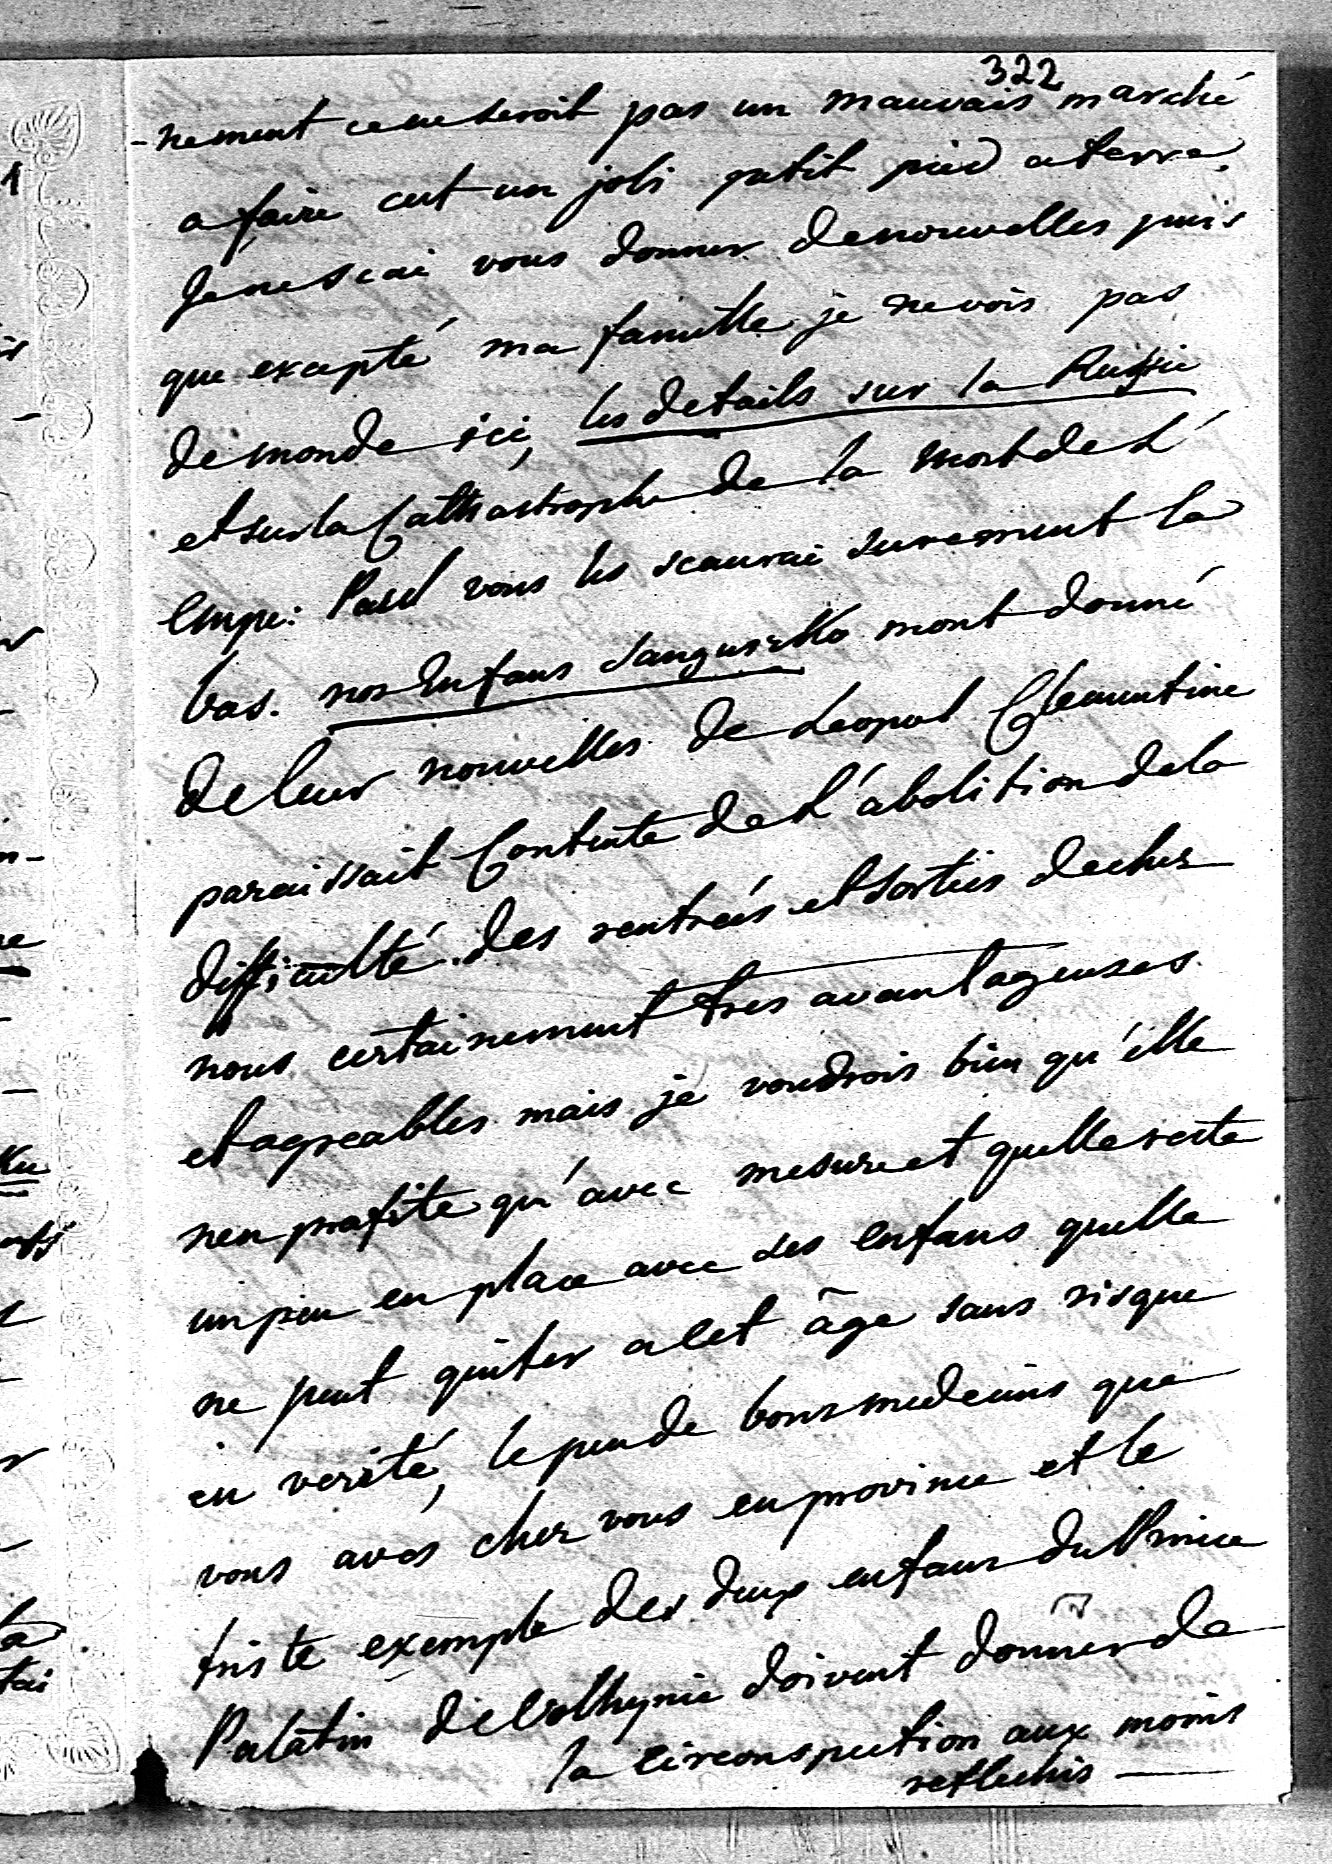 322
-nement ce ne seroit pas un mauvais marché
a faire cest un joli petit pied a terre,
Je ne scai vous donner de nouvelles puis
que excepté ma famille je ne vois pas
de monde ici, les details sur la Russie
et sur la Cathastrophe de la mort de L'
Empe: Paul vous les scaurai surement la
bas. nos Enfans Sanguszko mont donné
de leur nouvelles de Leopol Clementine
paraissait Contente de L'abolition de la
difficulté des rentrées et sorties de chez
nous certainement tres avantageuses
et agreables mais je voudrois bien qu'elle
nen profite qu'avec mesure et quelle reste
un peu en place avec ses enfans quelle
ne peut quiter a cet âge sans risque
en verité, le peu de bons medecins que
vous avés chez vous en province et le
triste exemple des deux enfans du Prince
Palatin de Volhynie doivent donner de
la circonspection aux moins
reflechis —